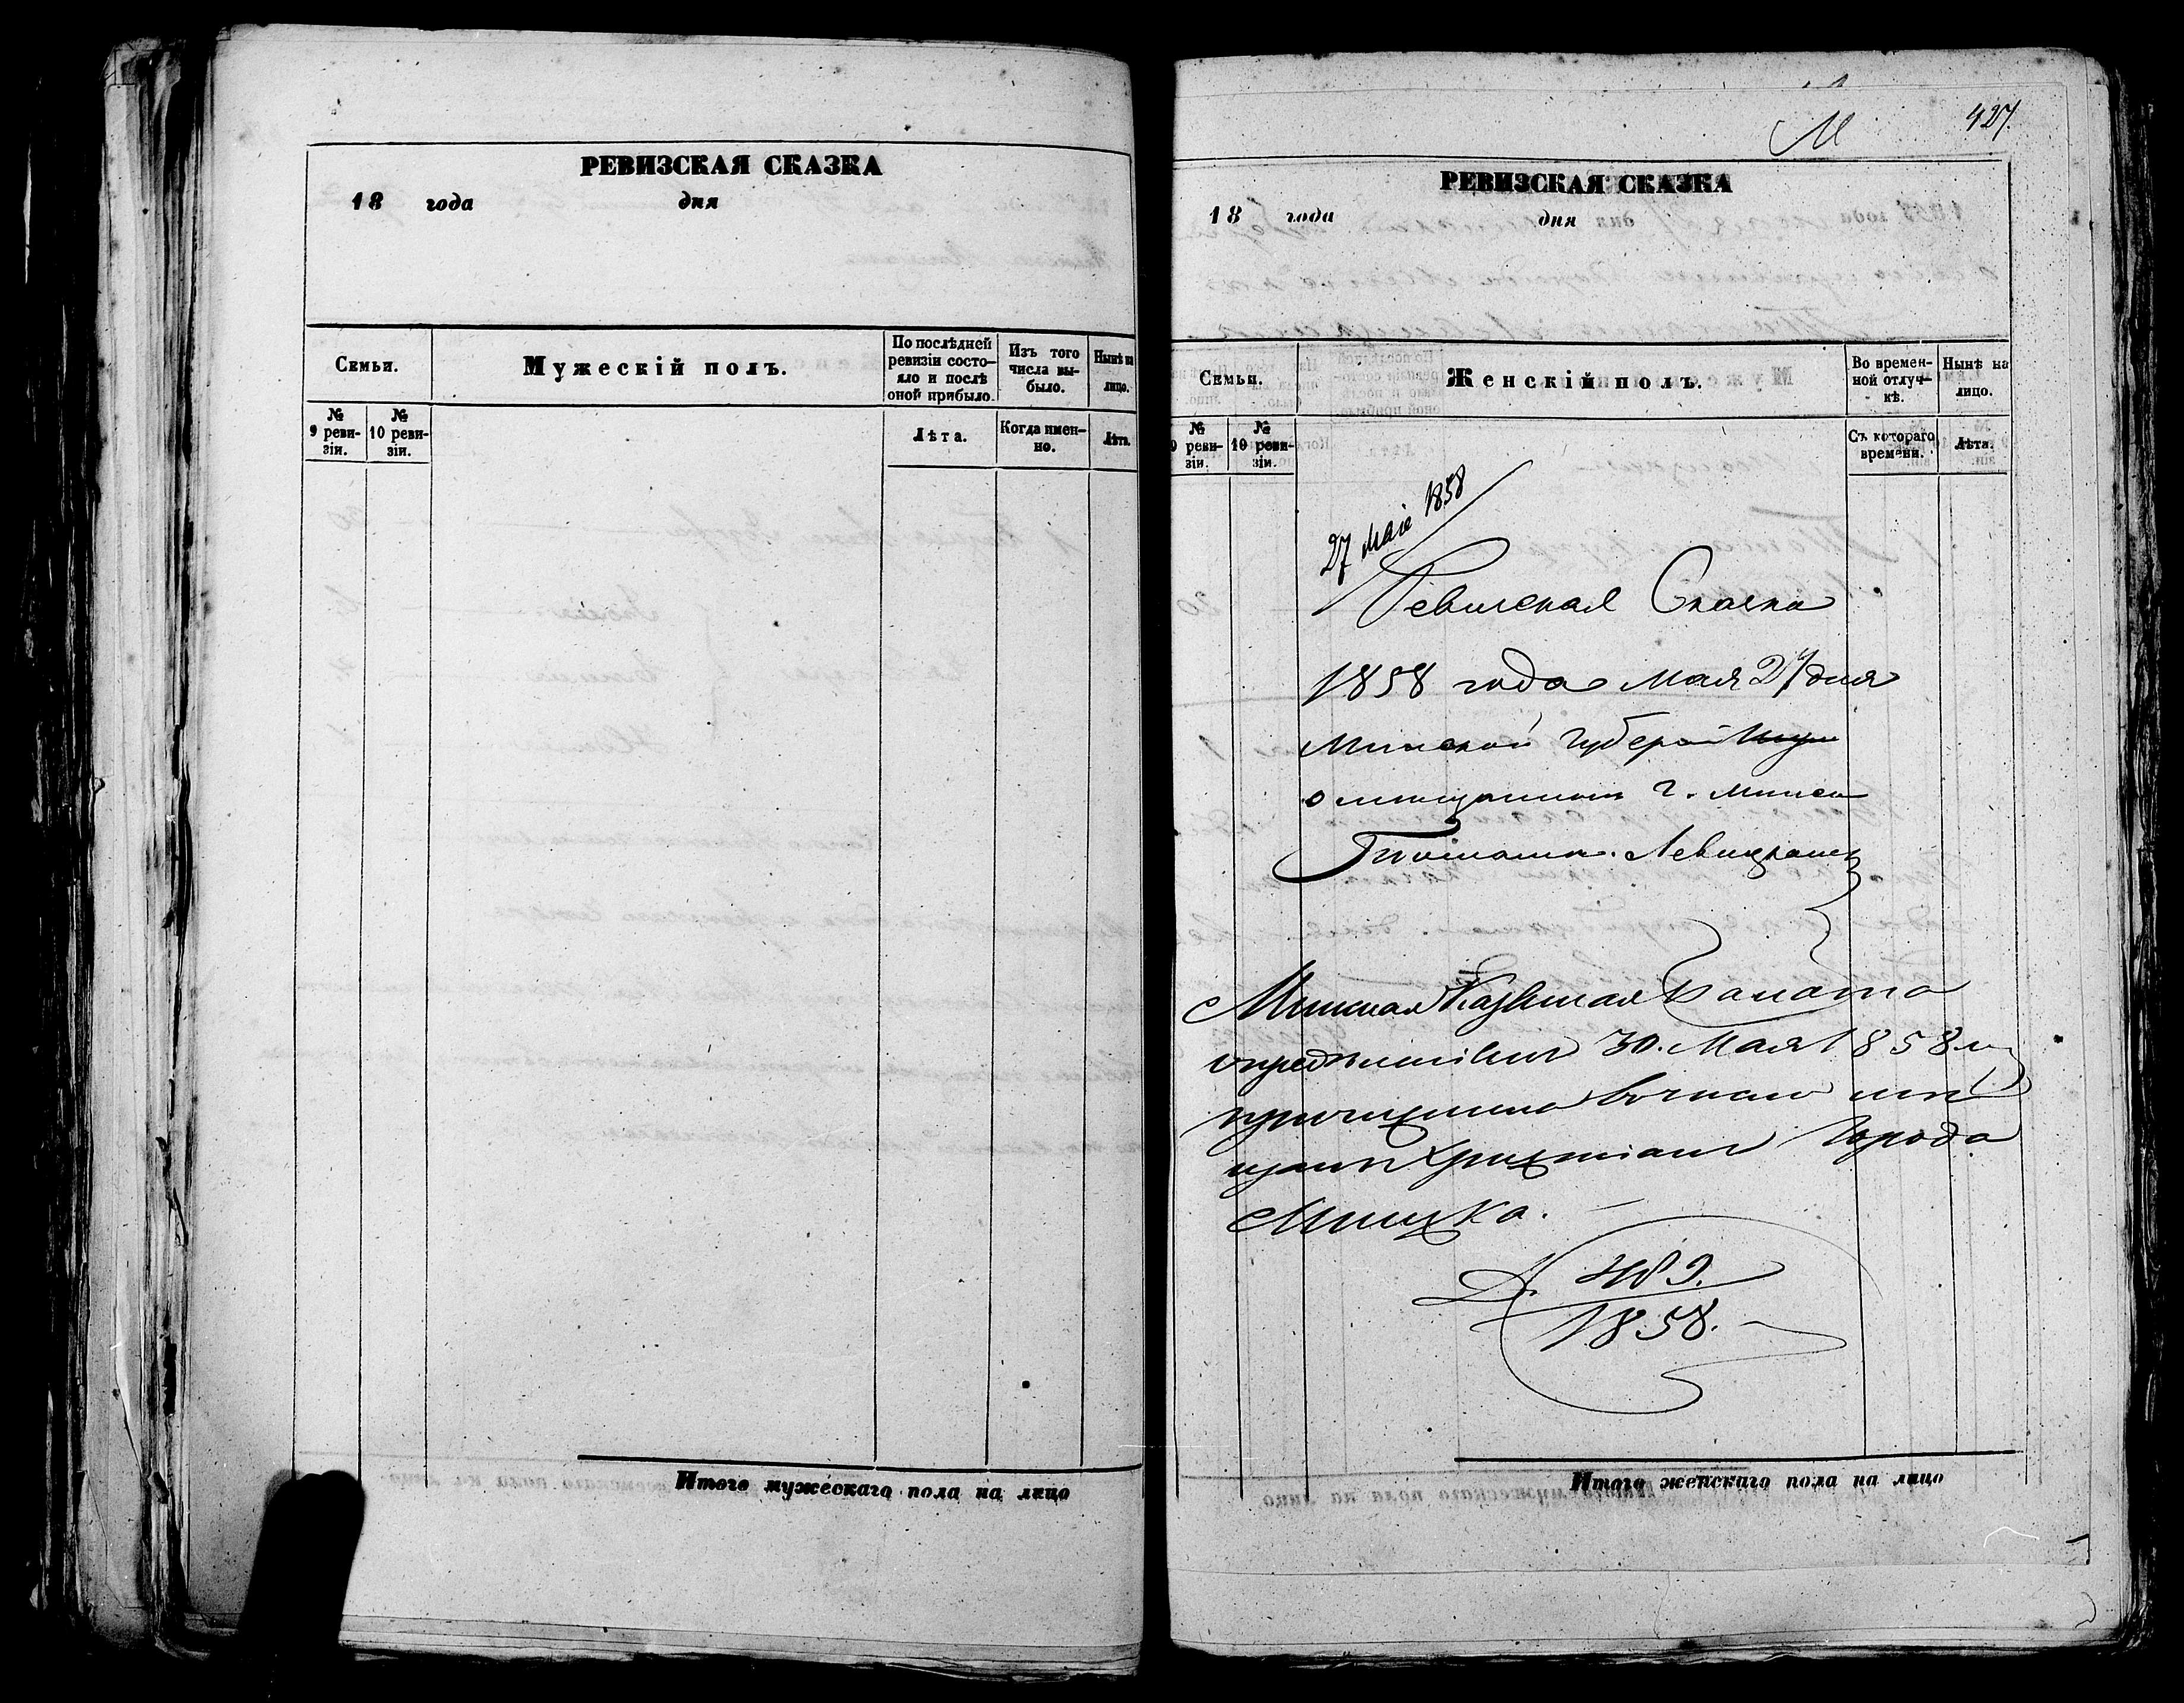 РЕВИЗСКАЯ СКАЗКА
18 года дня
Семьи.
Мужескій полъ.
По послѣдней ревизіи состояло и послѣ оной прибыло.
Изъ того числа выбыло.
Нынѣ на лицо.
№ 9 ревизіи.
№ 10 ревизіи.
Лѣта.
Когда именно.
Лѣта.
Итого мужескаго пола на лицо
М
427.
РЕВИЗСКАЯ СКАЗКА
18 года дня
Семьи.
Женскій полъ.
Во временной отлучкѣ.
Нынѣ на лицо.
№ 9 ревизіи.
№ 10 ревизіи.
Съ котораго времени.
Лѣта.
27 мая 1858
Ревизская Сказка
1858 года мая 27 дня
Минской Губерніи
о мещанинѣ г. Минска
Левицкомъ
Минская Казенная Палата
опредѣленіемъ 30. Мая 1858
причислила
Города
Минска.
Д. 489.
1858.
Итого женскаго пола на лицо